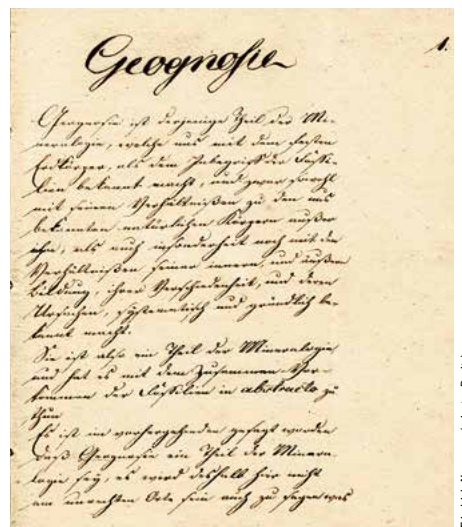 Geognosie
1.
Geognosie ist derjenige Theil der Mi-
neralogie, welche uns mit dem festen
Erdkörper, als dem Inbegriff der Fossi-
lien bekannt macht, und zwar sowohl
mit seinen Verhältnißen zu den uns
bekannten natürlichen Körpern außer
ihm, als auch insonderheit noch mit den
Verhältnißen seiner innern, und äußern
Bildung, ihrer Verschiedenheit, und deren
Ursachen, systematisch und gründlich be-
kannt macht.
Sie ist also ein Theil der Mineralogie
und hat es mit dem Zusammen Vor-
kommen der Fossilien in abstracto zu
thun
Es ist im vorhergehenden gesagt worden
daß Geognosie ein Theil der Minera-
logie sey, es wird deshalb hier nicht
am unrechten Orte sein auch zu sagen was